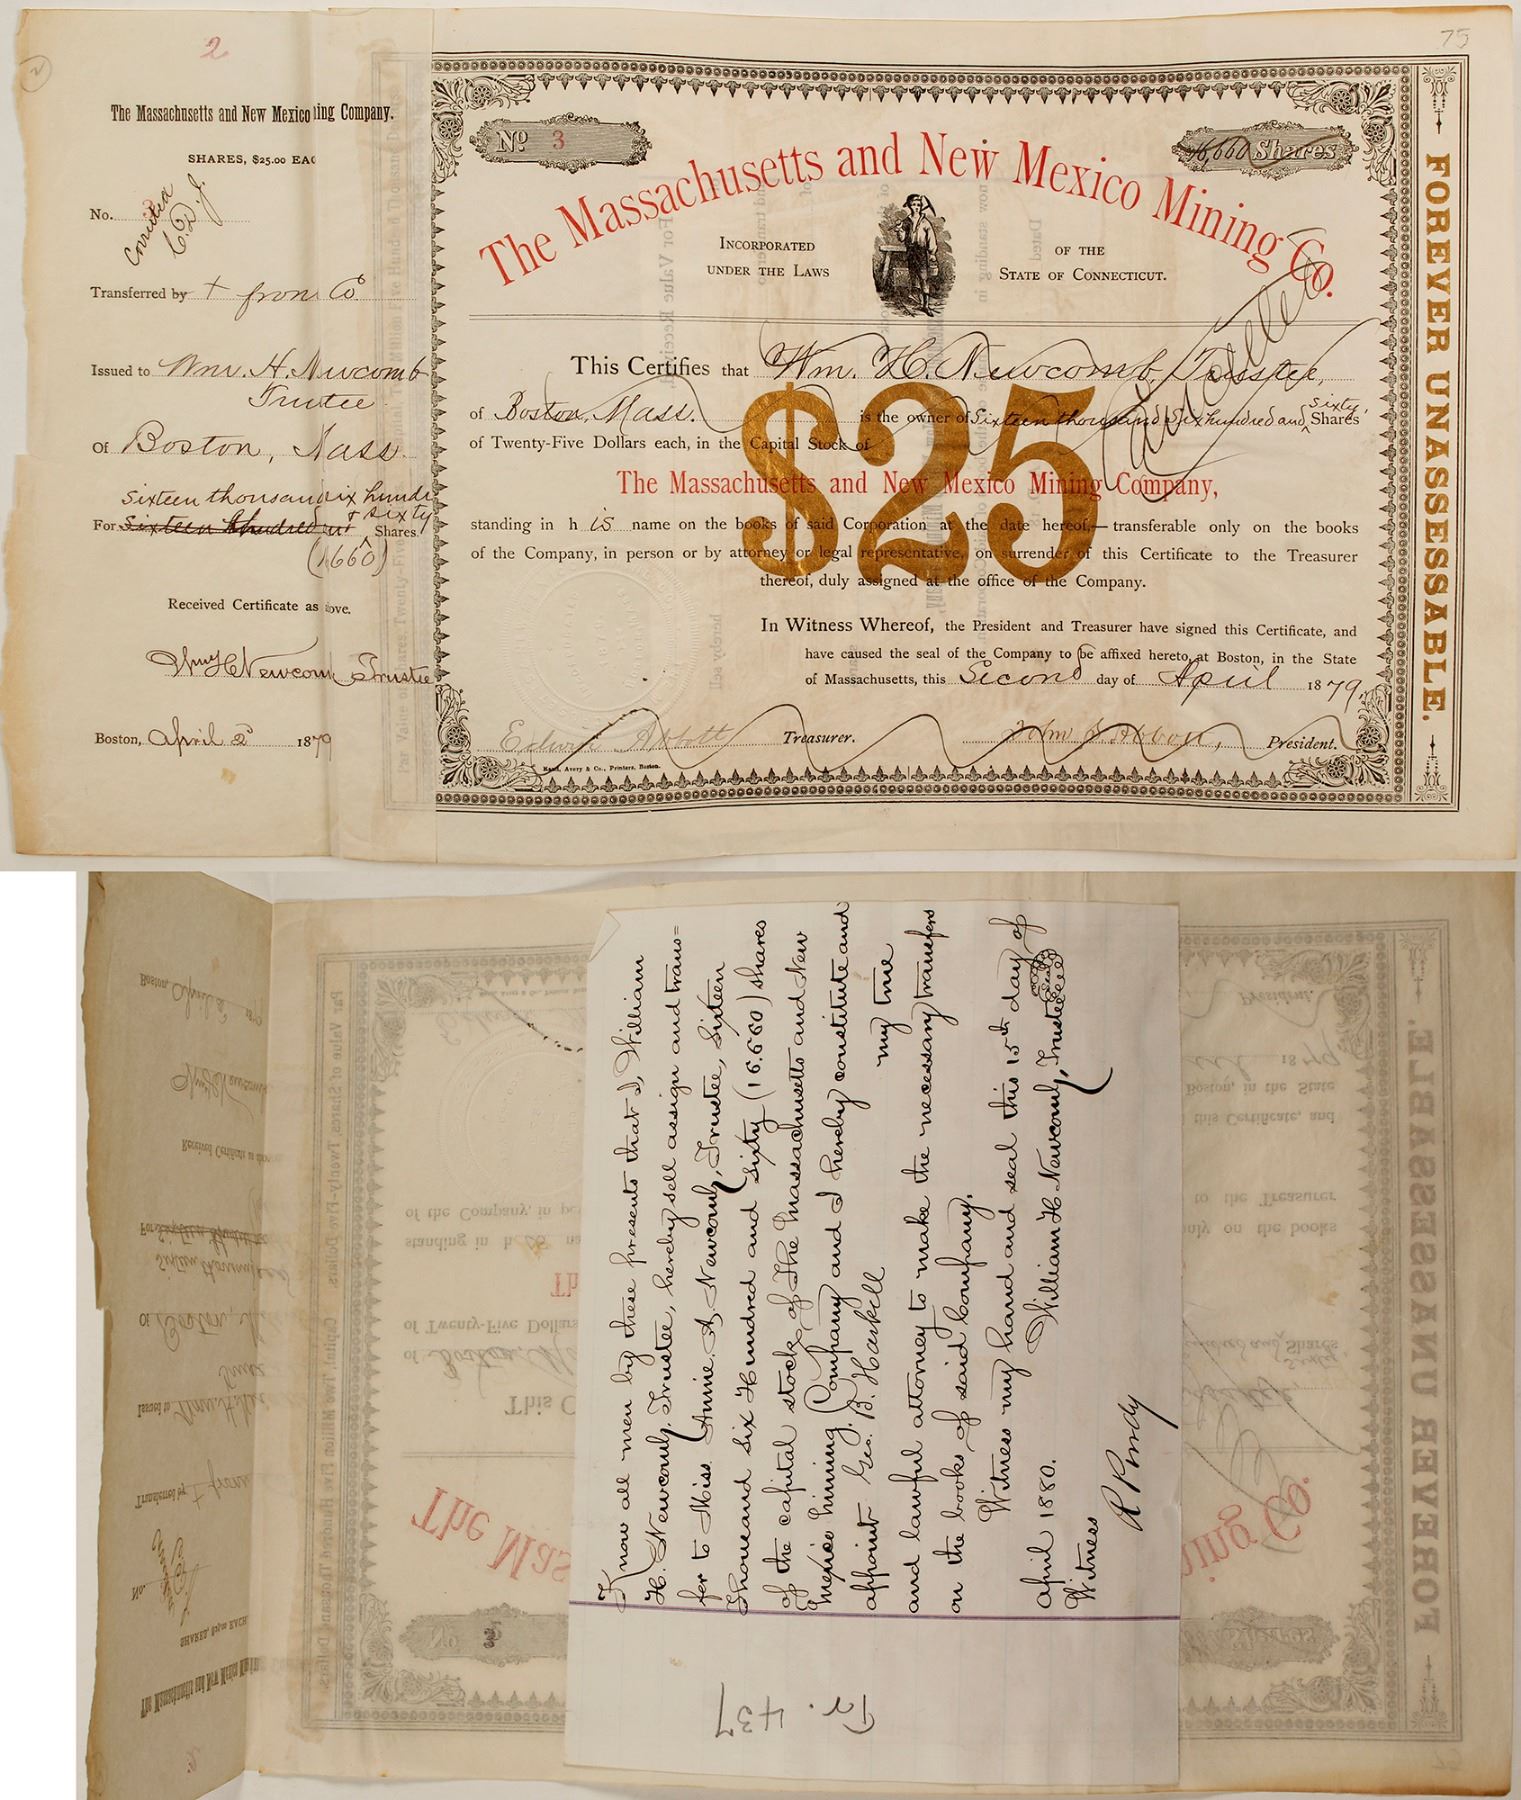 2
2
The Massachusetts and New Mexico ing Company.
SHARES, $25.00 EAC
No. 3
Corrected
C.D.J.
Transferred by + from Co
Issued to Wm. H. Newcomb
Trustee
Of Boston, Mass.
Sixteen thousand six hundr
& sixty
For Sixteen Hundred Shares.
(16660)
Received Certificate as above.
Wm H Newcomb Trustee
Boston, April 2d 1879
75
No 3
16,660 Shares
The Massachusetts and New Mexico Mining Co.
INCORPORATED
UNDER THE LAWS
OF THE
STATE OF CONNECTICUT.
Cancelled
This Certifies that Wm. H. Newcomb, Trustee,
of Boston, Mass. is the owner of Sixteen thousand Six hundred and ^ sixty, Shares
of Twenty-Five Dollars each, in the Capital Stock of
$25
The Massachusetts and New Mexico Mining Company,
standing in h is name on the books of said Corporation at the date hereof,— transferable only on the books
of the Company, in person or by attorney or legal representative, on surrender of this Certificate to the Treasurer
thereof, duly assigned at the office of the Company.
In Witness Whereof, the President and Treasurer have signed this Certificate, and
have caused the seal of the Company to be affixed hereto, at Boston, in the State
of Massachusetts, this Second day of April 1879,
Edwin Abbott Treasurer.
John J. Abbott, President.
Rand, Avery & Co., Printers, Boston.
FOREVER UNASSESSABLE.
Know all men by these presents that I, William
H. Newcomb, Trustee, hereby sell assign and trans=
fer to Miss Annie A. Newcomb, Trustee, Sixteen
Thousand Six Hundred and Sixty (16.660) shares
of the capital stock of The Massachusetts and New
Mexico Mining Company and I hereby constitute and
appoint Geo. B. Haskell my true
and lawful attorney to make the necessary transfers
on the books of said Company.
Witness my hand and seal this 15th day of
April 1880. William H. Newcomb, Trustee
Witness
R Purdy
Tr. 437